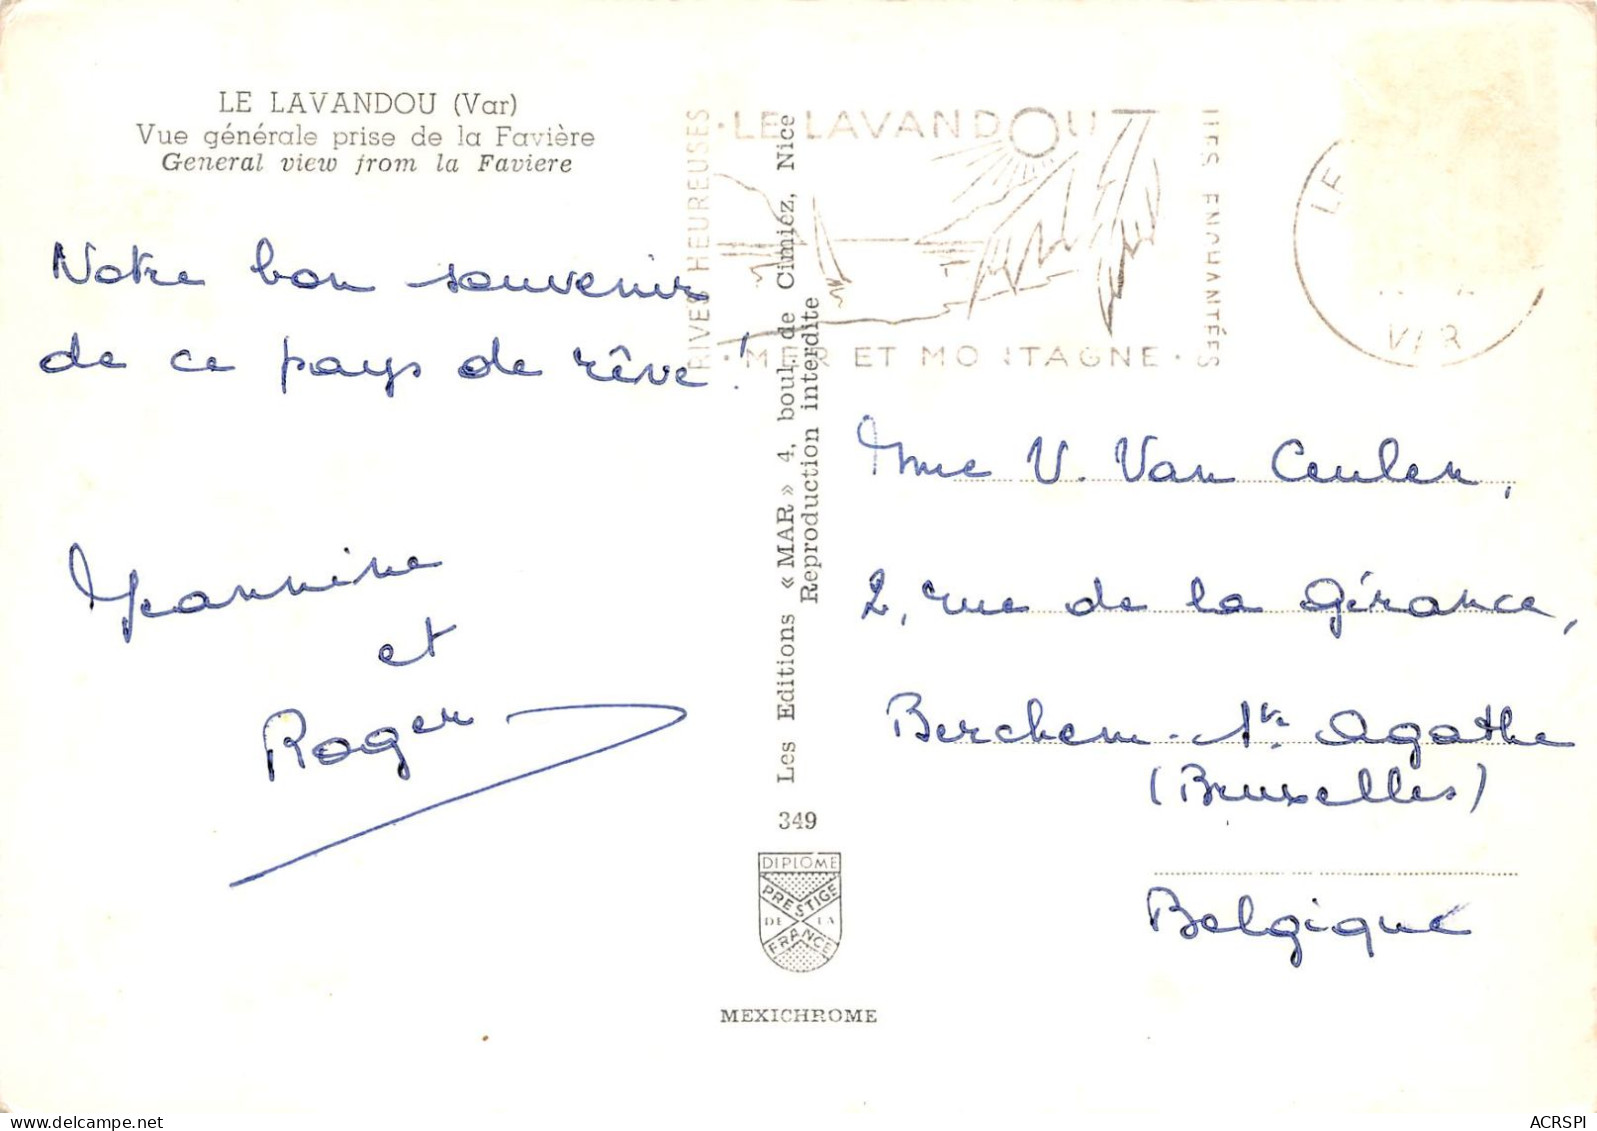 LE LAVANDOU (Var)
Vue générale prise de la Favière
General view from la Faviere
Notre bon souvenir
de ce pays de rêve !
Jeannine
et
Roger
RIVES HEUREUSES
· LE LAVANDOU
· MER ET MONTAGNE ·
ILES ENCHANTÉES
LE
VAR
Les Editions « MAR » 4, boul. de Cimiéz, Nice
Reproduction interdite
349
DIPLOME
PRESTIGE
DE LA
FRANCE
MEXICHROME
Mme V. Van Ceulen,
2, rue de la Gérance,
Berchem-Ste Agathe
(Bruxelles)
Belgique
ACRSPI